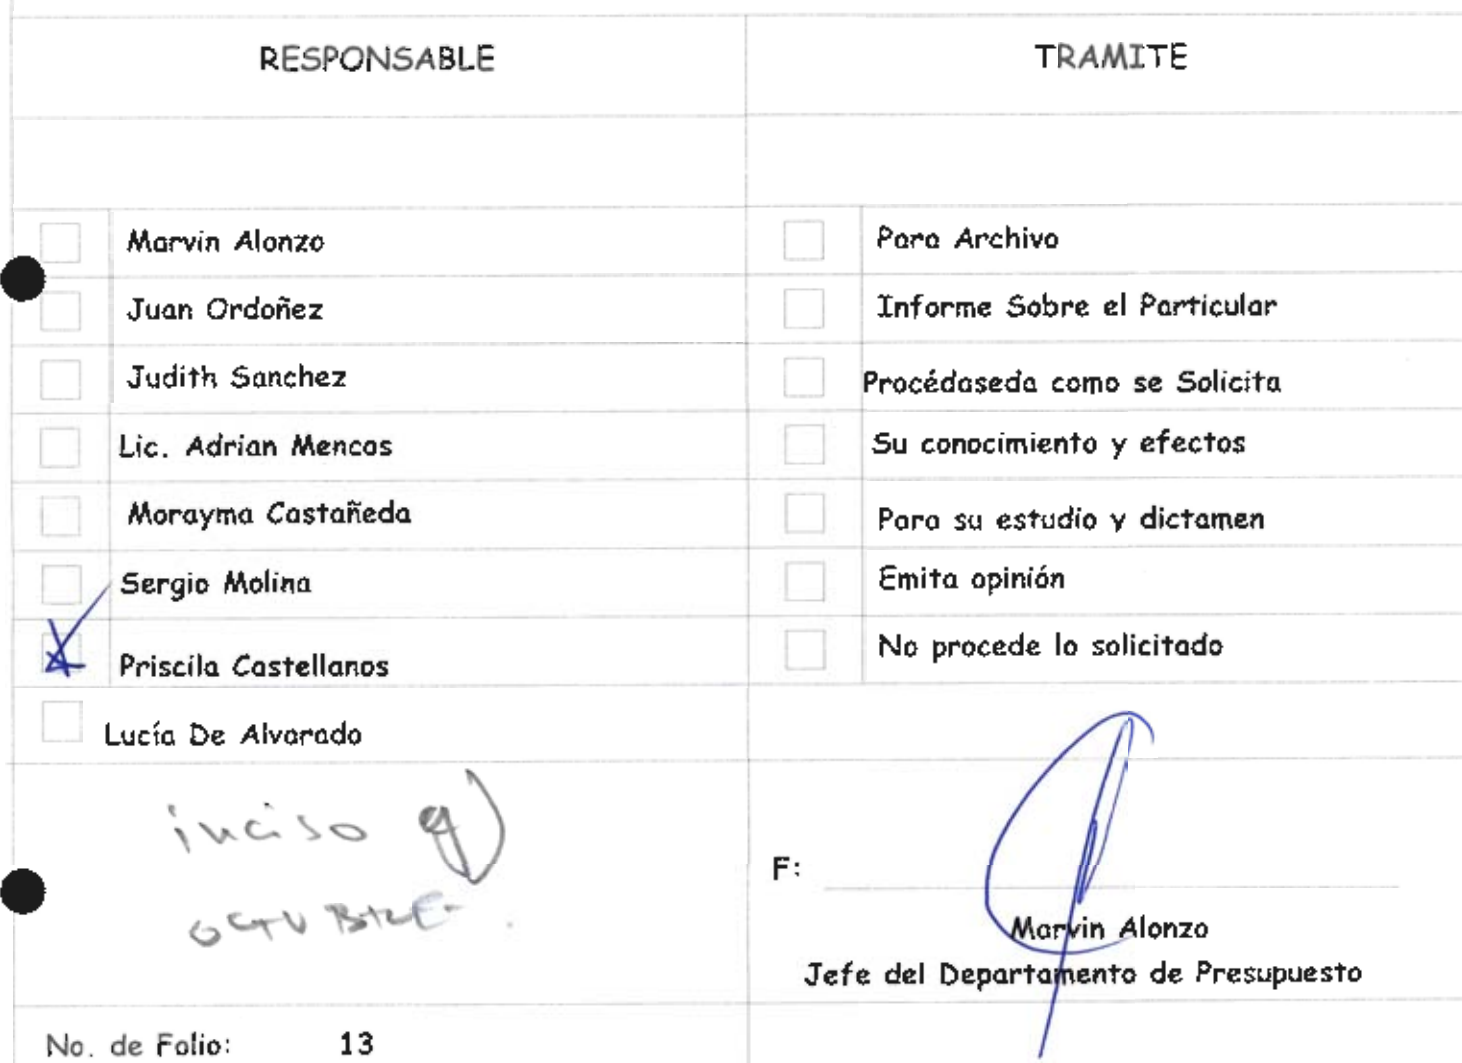 RESPONSABLE
TRAMITE
Marvin Alonzo
Para Archivo
Juan Ordoñez
Informe Sobre el Particular
Judith Sanchez
Procédaseda como se Solicita
Lic. Adrian Mencos
Su conocimiento y efectos
Morayma Castañeda
Para su estudio y dictamen
Sergio Molina
Emita opinión
Priscila Castellanos
No procede lo solicitado
Lucía De Alvarado
inciso g)
OCTUBRE
F:
Marvin Alonzo
Jefe del Departamento de Presupuesto
No. de Folio: 13